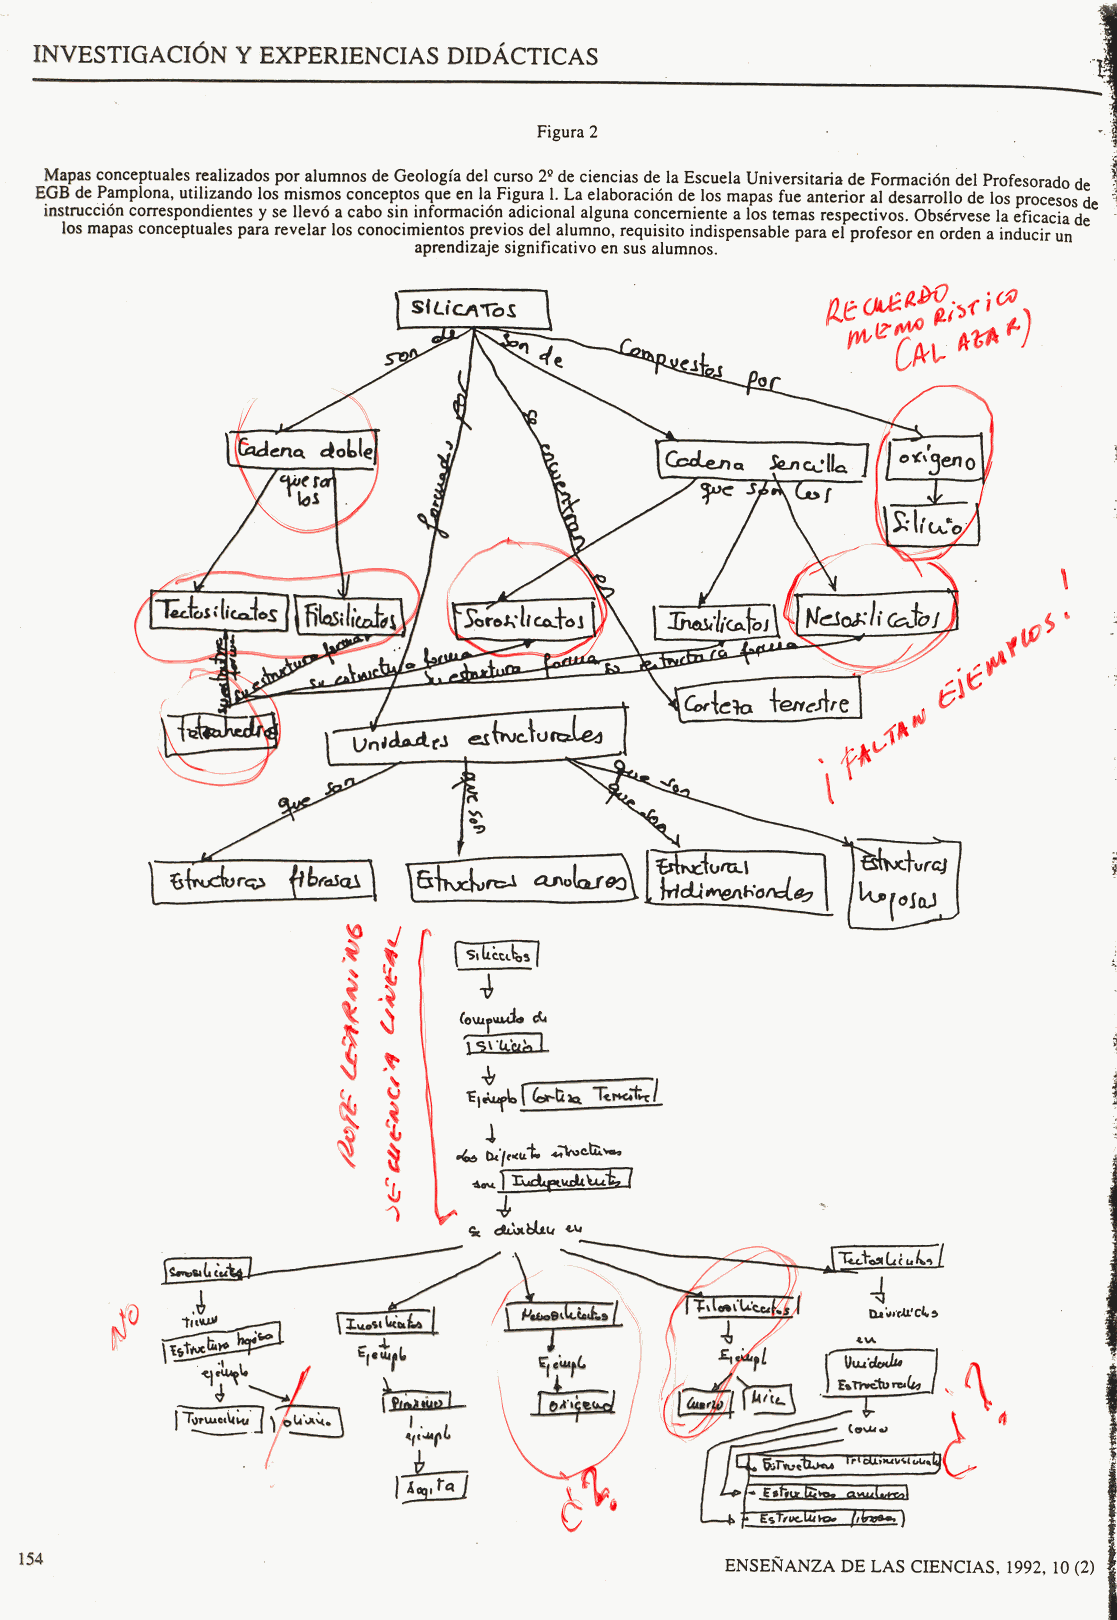 INVESTIGACIÓN Y EXPERIENCIAS DIDÁCTICAS
Figura 2
Mapas conceptuales realizados por alumnos de Geología del curso 2º de ciencias de la Escuela Universitaria de Formación del Profesorado de
EGB de Pamplona, utilizando los mismos conceptos que en la Figura 1. La elaboración de los mapas fue anterior al desarrollo de los procesos de
instrucción correspondientes y se llevó a cabo sin información adicional alguna concerniente a los temas respectivos. Obsérvese la eficacia de
los mapas conceptuales para revelar los conocimientos previos del alumno, requisito indispensable para el profesor en orden a inducir un
aprendizaje significativo en sus alumnos.
SILICATOS
RECUERDO
MEMORÍSTICO
(AL AZAR)
son de
son de
Compuestos por
formados por
se encuentran en
Cadena doble
Cadena sencilla
oxígeno
que son
los
que son los
Silicio
Tectosilicatos
Filosilicatos
Sorosilicatos
Inosilicatos
Nesosilicatos
su estructura forma
su estructura forma
su estructura forma
su estructura forma
su estructura forma
¡FALTAN EJEMPLOS!
tetrahedros
Corteza terrestre
Unidades estructurales
que son
que son
que son
que son
Estructuras fibrosas
Estructuras anulares
Estructuras
tridimentionales
Estructuras
hojosas
ROTE LEARNING
SECUENCIA LINEAL
Silicatos
Compuesto de
Silicio
Ejemplo Corteza Terrestre
Las Diferente estructuras
son Independientes
se dividen en
Sorosilicatos
Tectosilicatos
NO
tienen
Estructura hojosa
ejemplo
Turmalina
olivino
Inosilicatos
Ejemplo
Piroxenos
ejemplo
Augita
Nesosilicatos
Ejemplo
Oxigeno
¿?
Filosilicatos
Ejempl
Cuarzo
Mica
Divididos
en
Unidades
Estructurales
como
Estructuras tridimensionales
- Estructuras anulares
- Estructuras fibrosas
¿?
154
ENSEÑANZA DE LAS CIENCIAS, 1992, 10 (2)